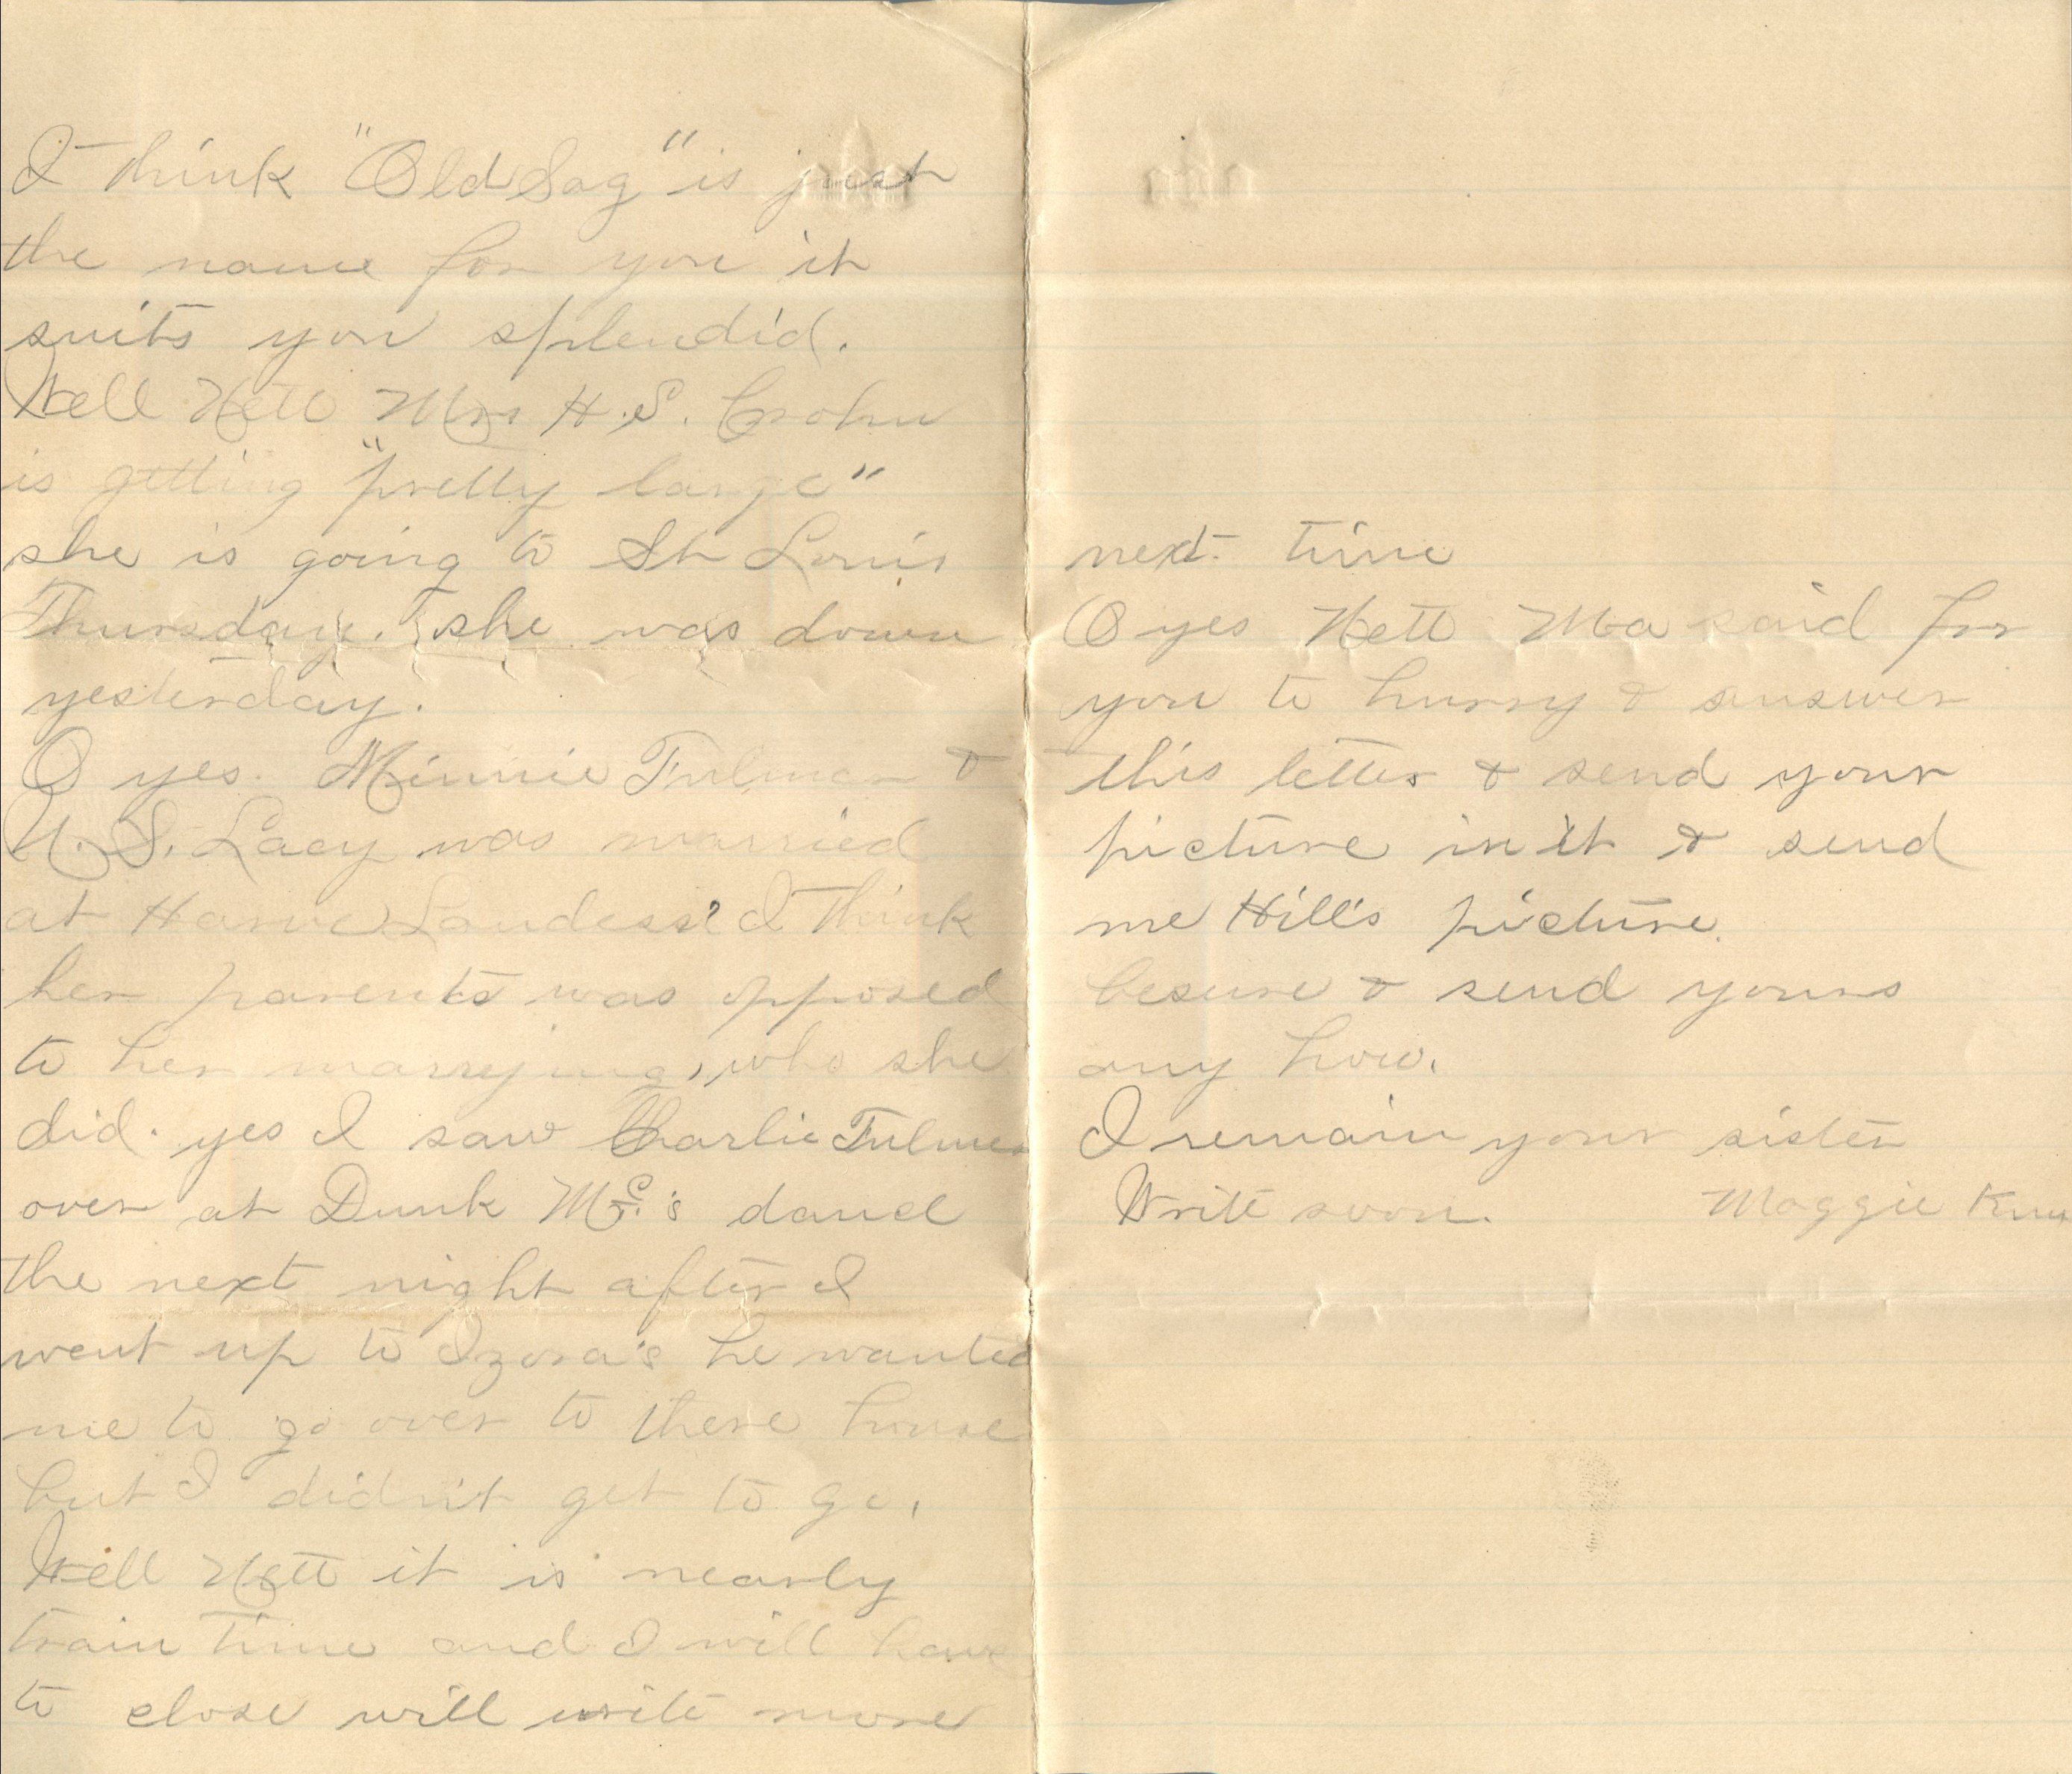 I think "Old Sag" is just
the name for you it
suits you splendid.
Well Nett Mrs H.S. Crohn
is getting "pretty large"
she is going to St Louis
Thursday. she was down
yesterday.
O yes. Minnie Fulmer &
U.S. Lacy was married
at Harve Landess? I think
her parents was opposed
to her marrying, who she
did. yes I saw Charlie Fulmer
over at Dunk Mc.'s dance
the next night after I
went up to Izora's he wanted
me to go over to there house
but I didn't get to go.
Well Nett it is nearly
train time and I will have
to close will write more
next time
O yes Nett Ma said for
you to hurry & answer
this letter & send your
picture in it & send
me Hill's picture.
besure & send yours
any how.
I remain your sister
Write soon. Maggie